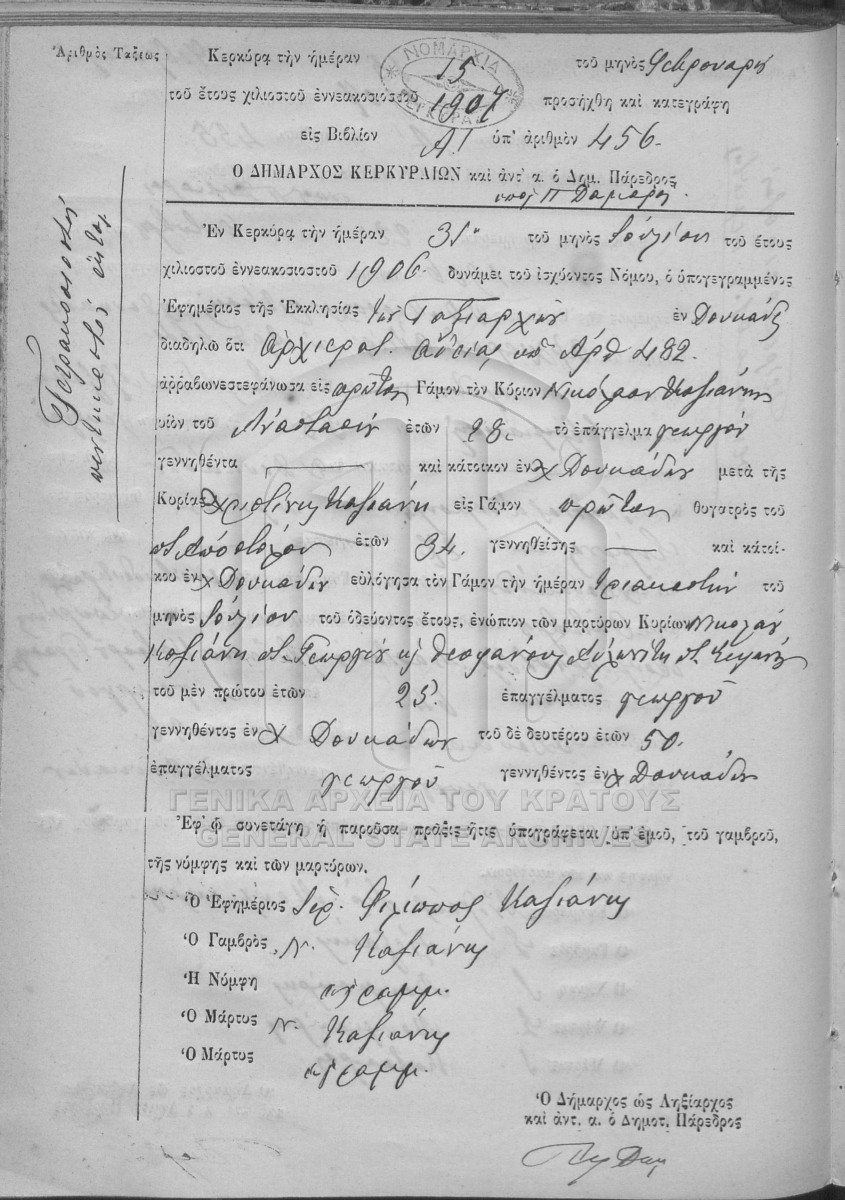 Ἀριθμὸς Τάξεως
Κερκύρᾳ τὴν ἡμέραν 15 τοῦ μηνὸς Φεβρουαρίου
ΝΟΜΑΡΧΙΑ ΚΕΡΚΥΡΑΣ
τοῦ ἔτους χιλιοστοῦ ἐννεακοσιοστοῦ 1907 προσήχθη καὶ κατεγράφη
εἰς Βιβλίον Α! ὑπ' ἀριθμὸν 456.
Ο ΔΗΜΑΡΧΟΣ ΚΕΡΚΥΡΑΙΩΝ καὶ ἀντ' α. ὁ Δημ. Πάρεδρος
Τετρακοσιοστὴ
πεντηκοστὴ ἕκτη
Ἐν Κερκύρᾳ τὴν ἡμέραν 31η τοῦ μηνὸς Ἰουλίου τοῦ ἔτους
χιλιοστοῦ ἐννεακοσιοστοῦ 1906. δυνάμει τοῦ ἰσχύοντος Νόμου, ὁ ὑπογεγραμμένος
Ἐφημέριος τῆς Ἐκκλησίας τῶν Ταξιαρχῶν ἐν Δουκάδες
διαδηλῶ ὅτι ἀρχιερατ. ἀδείας ὑπ' Ἀρθ 482.
ἀρραβωνεστεφάνωσα εἰς πρῶτον Γάμον τὸν Κύριον Νικόλαον Κοψιάνην
υἱὸν τοῦ Ἀναστασίου ἐτῶν 28. τὸ ἐπάγγελμα γεωργοῦ
γεννηθέντα — καὶ κάτοικον ἐν χ Δουκάδων μετὰ τῆς
Κυρίας Χριστίνης Κοψιάνη εἰς Γάμον πρῶτον θυγατρὸς τοῦ
π. Ἀποστόλου ἐτῶν 34. γεννηθείσης — καὶ κατοί-
κου ἐν χ Δουκάδων εὐλόγησα τὸν Γάμον τὴν ἡμέραν τριακοστὴν τοῦ
μηνὸς Ἰουλίου τοῦ ὁδεύοντος ἔτους, ἐνώπιον τῶν μαρτύρων Κυρίων Νικολάου
Κοψιάνη π. Γεωργίου κ Θεοφάνους
τοῦ μὲν πρώτου ἐτῶν 25. ἐπαγγέλματος γεωργοῦ
γεννηθέντος ἐν χ Δουκάδων τοῦ δὲ δευτέρου ἐτῶν 50.
ἐπαγγέλματος γεωργοῦ γεννηθέντος ἐν χ Δουκάδων
ΓΕΝΙΚΑ ΑΡΧΕΙΑ ΤΟΥ ΚΡΑΤΟΥΣ
GENERAL STATE ARCHIVES
Ἐφ' ᾧ συνετάγη ἡ παροῦσα πρᾶξις ἥτις ὑπογράφεται ὑπ' ἐμοῦ, τοῦ γαμβροῦ,
τῆς νύμφης καὶ τῶν μαρτύρων.
Ὁ Ἐφημέριος Ἱερ. Φίλιππος Κοψιάνης
Ὁ Γαμβρὸς Ν. Κοψιάνης
Ἡ Νύμφη ἀγράμμ.
Ὁ Μάρτυς Ν. Κοψιάνης
Ὁ Μάρτυς ἀγράμμ.
Ὁ Δήμαρχος ὡς Ληξίαρχος
καὶ ἀντ. α. ὁ Δημοτ. Πάρεδρος